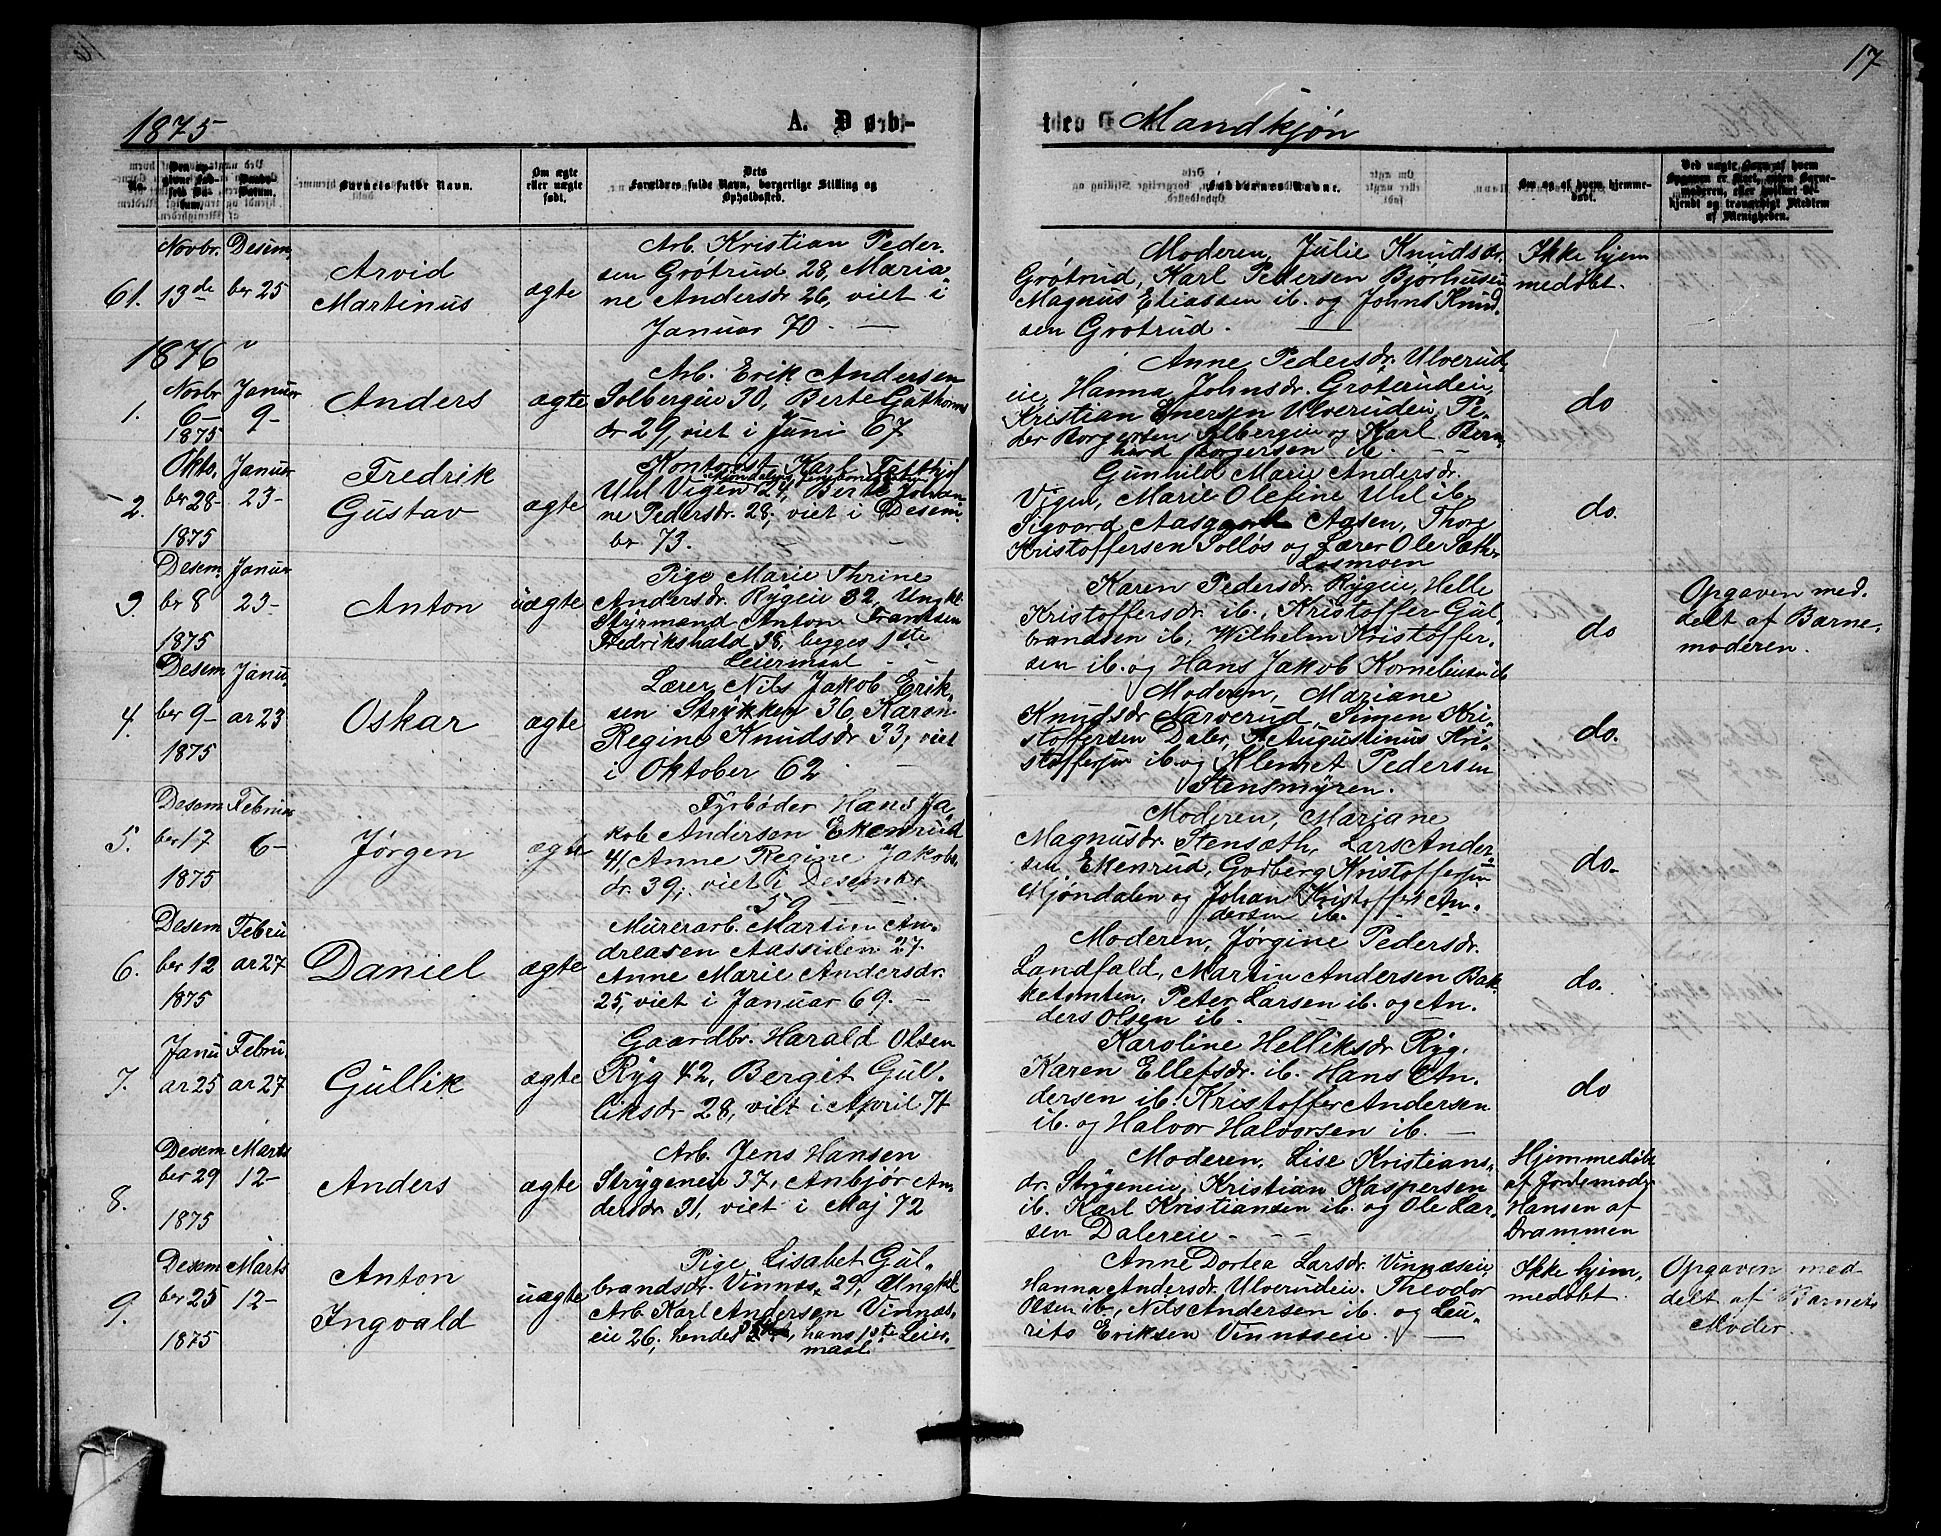 17
1875
A. Døb-
te
Mandkjøn
No.
Den opgivne Fødsels Datum.
Daabs Datum.
Barnets fulde Navn.
Om ægte eller uægte født.
Dets Forældres fulde Navn, borgerlige Stilling og Opholdssted.
Faddernes Navne.
Om og af hvem hjemmedøbt.
Ved uægte Børn af hvem Opgaven er skeet, enten Barnemoderen, eller hvilket bekjendt og troværdigt Medlem af Menigheden.
61.
Novbr.
13de
Desem
ber 25
Arvid
Martinus
ægte
Arb. Kristian Peder-
sen Grøtrud 28, Maria-
ne Andersdr 26, viet i
Januar 70.
Moderen, Julie Knudsdr.
Grøtrud, Karl Pedersen Bjørhusen
Magnus Eliassen ib. og Johns Knud
sen Grøtrud.
Ikke hjem
medøbt.
1876
1.
Novbr
6-
1875
Januar
9-
Anders
ægte
Arb. Erik Andersen
Solbergeie 30, Berte Guthorms
dr 29, viet i Juni 67
Anne Pedersdr. Ulverud-
eie, Hanna Johnsdr. Grøterudeie,
Kristian Enersen Ulverudeie, Pe-
der Borgersen Solbergeie og Karl Bern
hard Borgersen ib.
do
2.
Okto.
ber 28-
1875
Januar
23-
Fredrik
Gustav
ægte
Kontorist Karl Fatthjof
Uhl Vigen 24, Berte Johan
ne Pedersdr. 28, viet i Desem.
br 73.
Gunhild Marie Andersdr.
Vigen, Marie Olefine Uhl ib.
Sigvard Aasgaard Aasen, Thore
Kristoffersen Solløs og Lærer Ole Sæther
Losmoen
do.
3.
Desem
ber 8
1875
Januar
23-
Anton
uægte
Pige Marie Thrine
Andersdr. Rygeie 32, Ungkl.
Styrmand Anton Frantsen
Fredrikshald 38, begges 1ste
Leiermaal
Karen Pedersdr. Rygeie, Helle
Kristoffersdr. ib., Kristoffer Gul
brandsen ib., Wilhelm Kristoffer-
sen ib. og Hans Jakob Korneliusen ib
do
Opgaven med.
delt af Barne.
moderen.
4.
Desem
ber 9-
1875
Janu-
ar 23
Oskar
ægte
Lærer Nils Jakob Erik-
sen Strykken 36, Karen
Regine Knudsdr 33, viet
i Oktober 62
Moderen, Mariane
Knudsdr Narverud, Simen Kri-
stoffersen Daler, Augustinus Kri-
stoffersen ib. og Klemet Pedersen
Stensmyren.
do.
5.
Desem
ber 17
1875
Februar
6-
Jørgen
ægte
Fyrbøder Hans Ja-
kob Andersen Ekenrud
41, Anne Regine Jakobs
dr. 39, viet i Desember
59
Moderen, Mariane
Magnusdr. Stensæth, Lars Ander
sen, Ekenrud, Gudberg Kristoffersen
Mjøndalen og Johan Kristoffer An-
dersen ib.
do.
6.
Desem
ber 12
1875
Febru
ar 27
Daniel
ægte
Murerarb. Martin An-
dreasen Aassiden 27.
Anne Marie Andersdr.
25, viet i Januar 69.
Moderen, Jørgine Pedersdr.
Landfald, Martin Andersen Bak-
ketomten, Peter Larsen ib. og An-
ders Olsen ib.
do.
7.
Janu
ar 25
Febru.
ar 27
Gullik
ægte
Gaardbr. Harald Olsen
Ryg 42, Bergit Gul-
liksdr 28, viet i April 71
Karoline Helliksdr Ryg.
Karen Ellefsdr. ib. Hans An-
dersen ib. Kristoffer Andersen
ib. og Halvor Halvorsen ib.
do
8.
Desem
ber 29
1875
Marts
12-
Anders
ægte
Arb. Jens Hansen
Strygeneie 37, Anbjør An-
dersdr 31, viet i Maj 72
Moderen. Lise Kristians-
dr. Strygeneie, Kristian Kaspersen
ib. Karl Kristiansen ib. og Ole Lar-
sen Dalereie
Hjemmedøbt
af Jordemoder
Hansen af
Drammen
9.
Desem
ber 25
1875
Marts
12-
Anton
Ingvald
uægte
Pige, Lisabet Gul-
brandsdr. Vinnæs, 29, Ungkl.
Arb. Karl Andersen Vinnæs-
eie 26, hendes hans 1ste Leier-
maal
Anne Dortea Larsdr. Vinnæseie,
Hanna Andersdr. Ulverudeie. Theodor
Olsen ib., Nils Andersen ib. og Leu-
rits Eriksen Vinnæseie.
Ikke hjem-
medøbt.
Opgaven med
delt af Barnets
Moder.